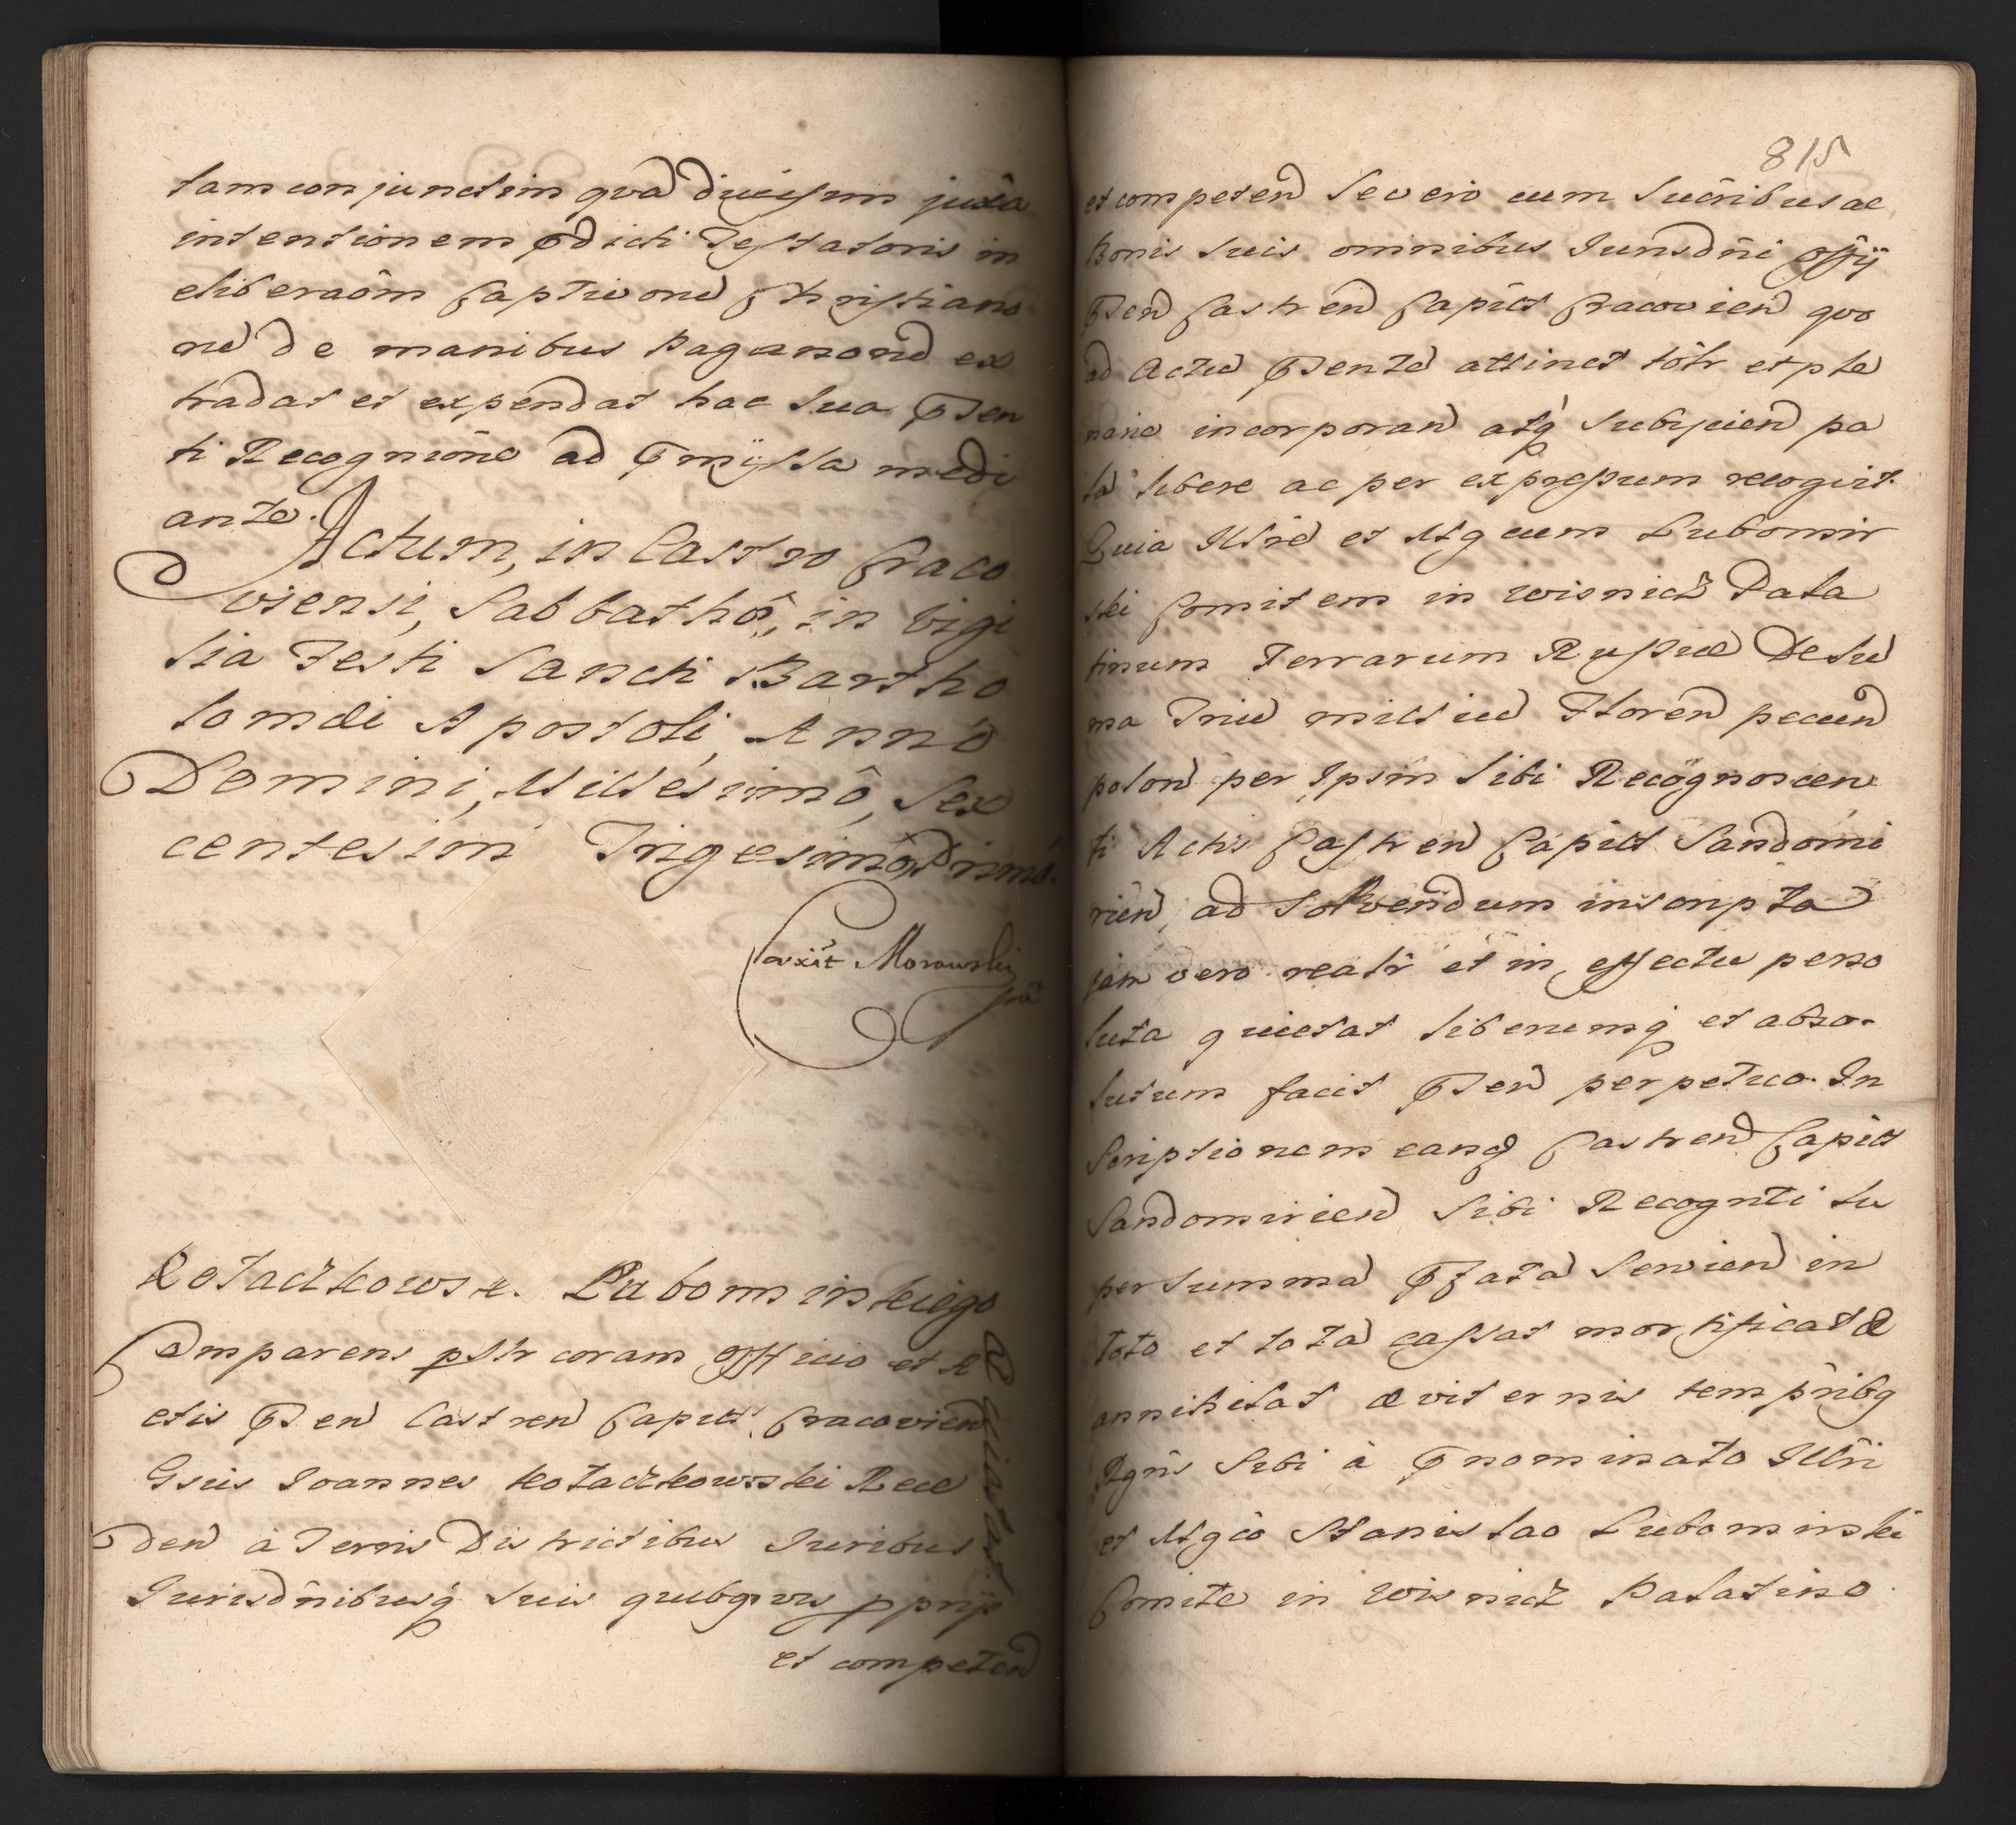 tam conjunctim qva divisim juxta
intentionem pdicti Testatoris in
eliberaôm Captivorū Christiano
rū de manibus Paganorū ex
tradat et expendat hac sua pñsen
ti Recognitiône ad pmissa medi
ante.
Actum, in Castro Craco
viensi, Sabbathô, in vigi
lia Festi Sancti Bartho
lomæi Apostoli, Annô
Domini, Millésimô, Sex
centesim Trigesimô Primô.
Coñxit Morawski
mp
Kotaczkowsk. Lubomirskiego
Comparens psñlr coram officio et A
ctis pñsen Castren Capitt Cracovien
Gsus Joannes Kotaczkowski Rece
den à Terris Districtibus Juribus
Jurisdñibusq suis quibqvis pprijs
et competen
Quietatio
815
et competen se vero cum sucñribus ac
Bonis suis omnibus Jurisdñi offij
pñsen Castren Capitt Cracovien qvo
ad Actū pñsentē attinet tôlr et ple
narie incorporan atq subijcien pa
lā libere ac per expressum recogvit.
Quia Illrē et Mgcum Lubomir
ski Comitem in Wisnicz Pala
tinum Terrarum Russiæ De su
ma Triū millium Floren pecun
polon per Ipsm sibi Recognoscen
ti Actis Castren Capitt Sandomi
rien, ad solvendum inscripta
jam vero realr et in effectu perso
luta quietat liberumq et abso-
lutum facit pñsen perpetuo. In
scriptionem eand Castren Capitt
Sandomirien sibi Recognti su
per summā pfatā servien in
toto et totā cassat mortificat &
annihilat æviternis tempôribq
Rgñs sibi à pnominato Illri
et Mgco Stanislao Lubomirski
Comite in Wisnicz Palatino